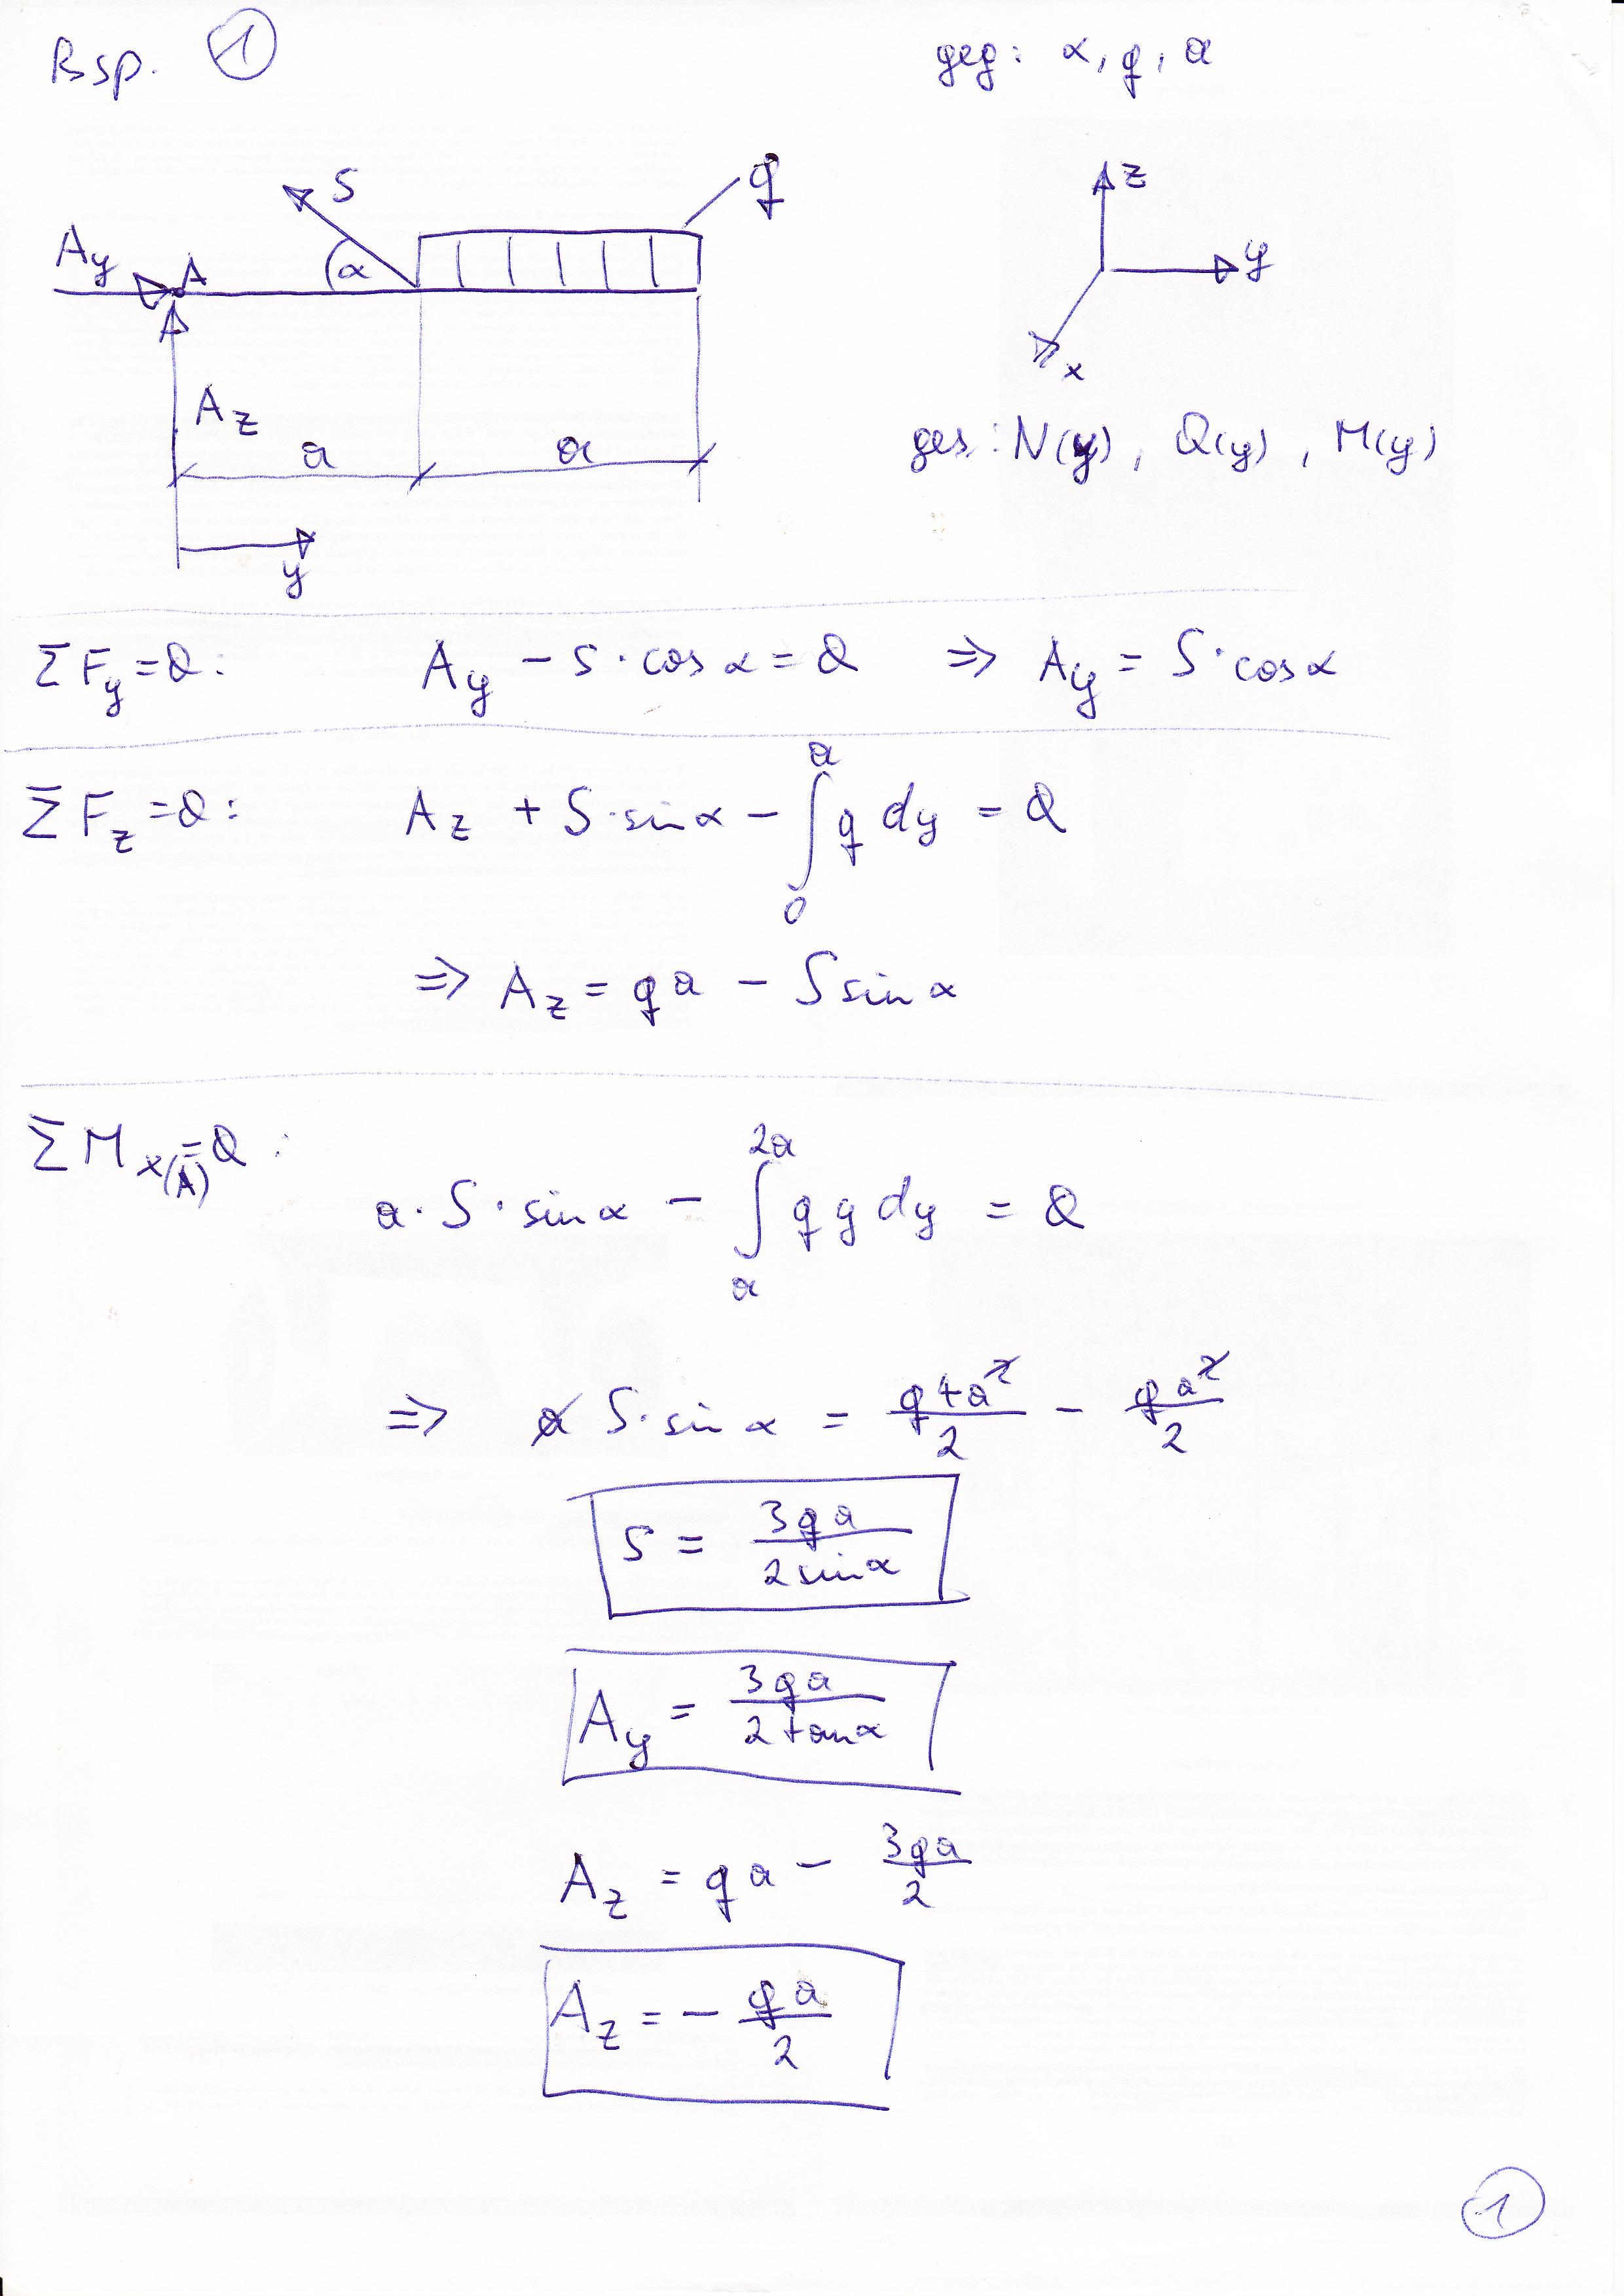 Bsp. 1
geg: α, q, a
S
q
A_y
A
α
z
y
x
A_z
a
a
y
ges: N(y), Q(y), M(y)
ΣF_y = 0: A_y - S · cos α = 0 ⇒ A_y = S · cos α
ΣF_z = 0: A_z + S · sin α - ∫_0^a q dy = 0
⇒ A_z = q a - S sin α
ΣM_x(A) = 0:
a · S · sin α - ∫_a^{2a} q y dy = 0
⇒ a S · sin α = q4a²/2 - qa²/2
S = 3qa / 2 sin α
A_y = 3qa / 2 tan α
A_z = qa - 3qa/2
A_z = - qa/2
1